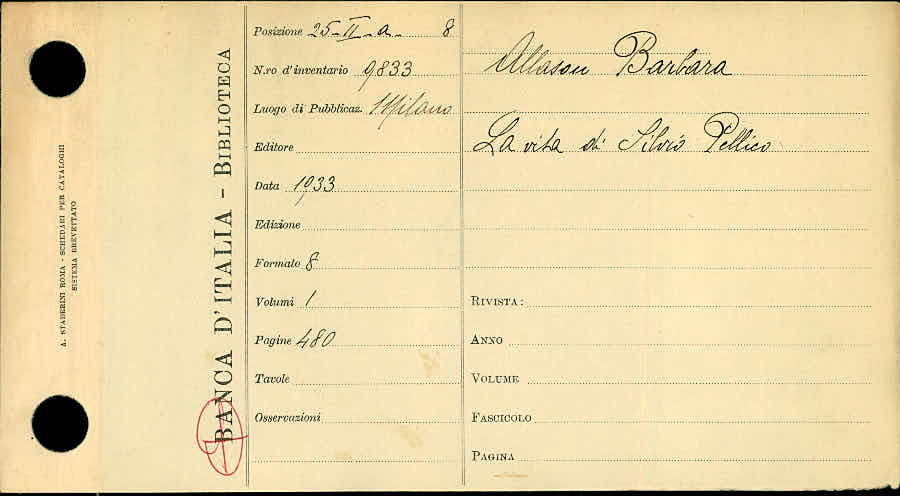 A. STADERINI ROMA - SCHEDARI PER CATALOGHI
SISTEMA BREVETTATO
BANCA D'ITALIA - BIBLIOTECA
Posizione 25-II-a- 8
N.ro d'inventario 9833
Luogo di Pubblicaz. Milano
Editore
Data 1933
Edizione
Formato 8
Volumi 1
Pagine 480
Tavole
Osservazioni
Allason Barbara
La vita di Silvio Pellico
RIVISTA:
ANNO
VOLUME
FASCICOLO
PAGINA